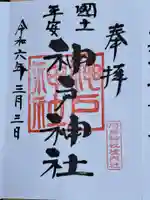 奉拝
国土
平安
神戸神社
令和六年三月三日